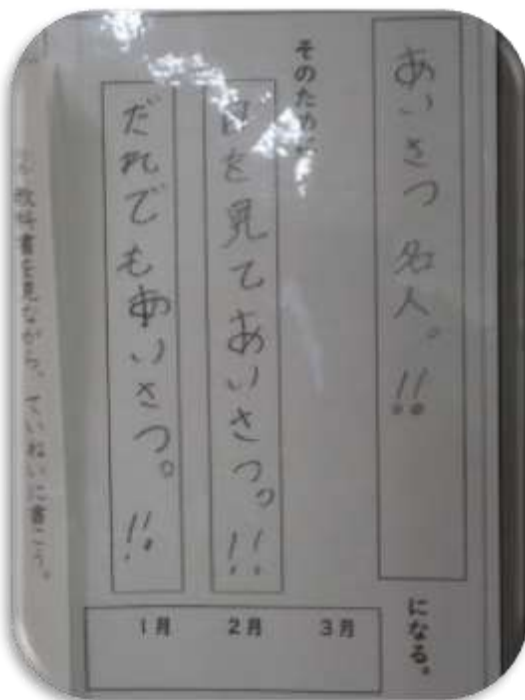 あいさつ名人。!!
になる。
そのために
目を見てあいさつ。!!
だれでもあいさつ。!!
3月
2月
1月
教科書を見ながら、ていねいに書こう。